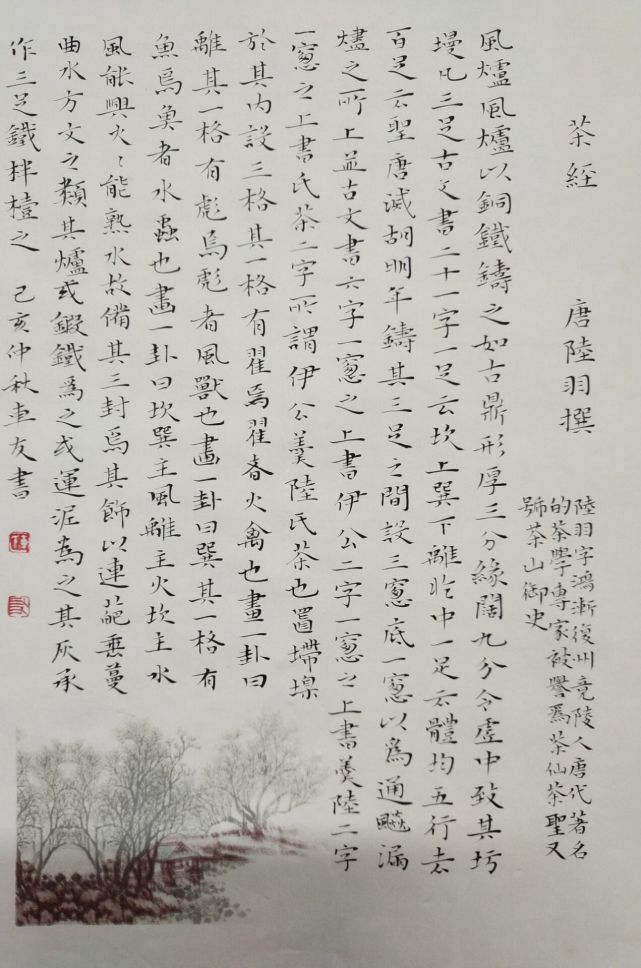 茶經　唐陸羽撰
陸羽字鴻漸復州竟陵人唐代著名
的茶學專家被譽爲茶仙茶聖又
號茶山御史
風爐風爐以銅鐵鑄之如古鼎形厚三分緣闊九分令虛中致其圬
墁凡三足古文書二十一字一足云坎上巽下離於中一足云體均五行去
百足云聖唐滅胡明年鑄其三足之間設三窻底一窻以爲通飈漏
燼之所上並古文書六字一窻之上書伊公二字一窻之上書羹陸二字
一窻之上書氏茶二字所謂伊公羹陸氏茶也置墆㙞
於其内設三格其一格有翟焉翟者火禽也畫一卦曰
離其一格有彪焉彪者風獸也畫一卦曰巽其一格有
魚焉魚者水蟲也畫一卦曰坎巽主風離主火坎主水
風能興火火能熟水故備其三封焉其飾以連葩垂蔓
曲水方文之類其爐或鍛鐵爲之或運泥爲之其灰承
作三足鐵柈檯之　己亥仲秋車友書